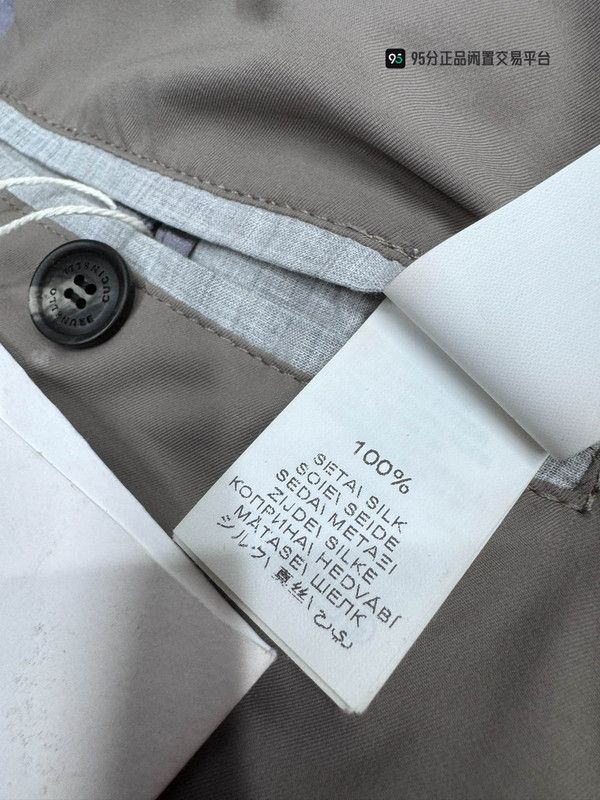 95分正品闲置交易平台
BRUNELLO CUCINELLI
100%
SETA\ SILK
SOIE\ SEIDE
SEDA\ ΜΕΤΑΞΙ
ZIJDE\ SILKE
КОПРИНА\ HEDVÁBÍ
MĂTASE\ ШЕЛК
シルク\ 真丝\ حرير